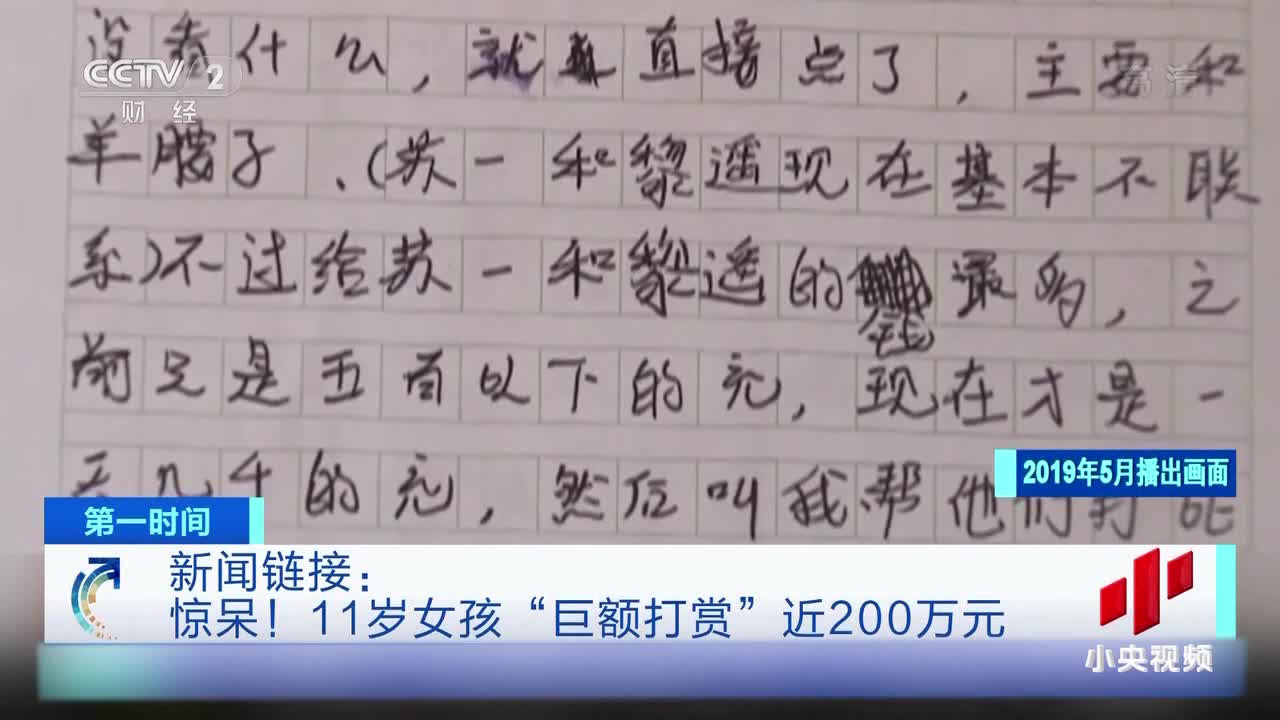 没看什么，就直接点了，主要和
羊腰子、（苏一和黎遥现在基本不联
系）不过给苏一和黎遥的钱最多，之
前只是五百以下的充，现在才是一
天几千的充，然后叫我帮他们打
CCTV 2
财经
高清
2019年5月播出画面
第一时间
新闻链接：
惊呆！11岁女孩“巨额打赏”近200万元
小央视频